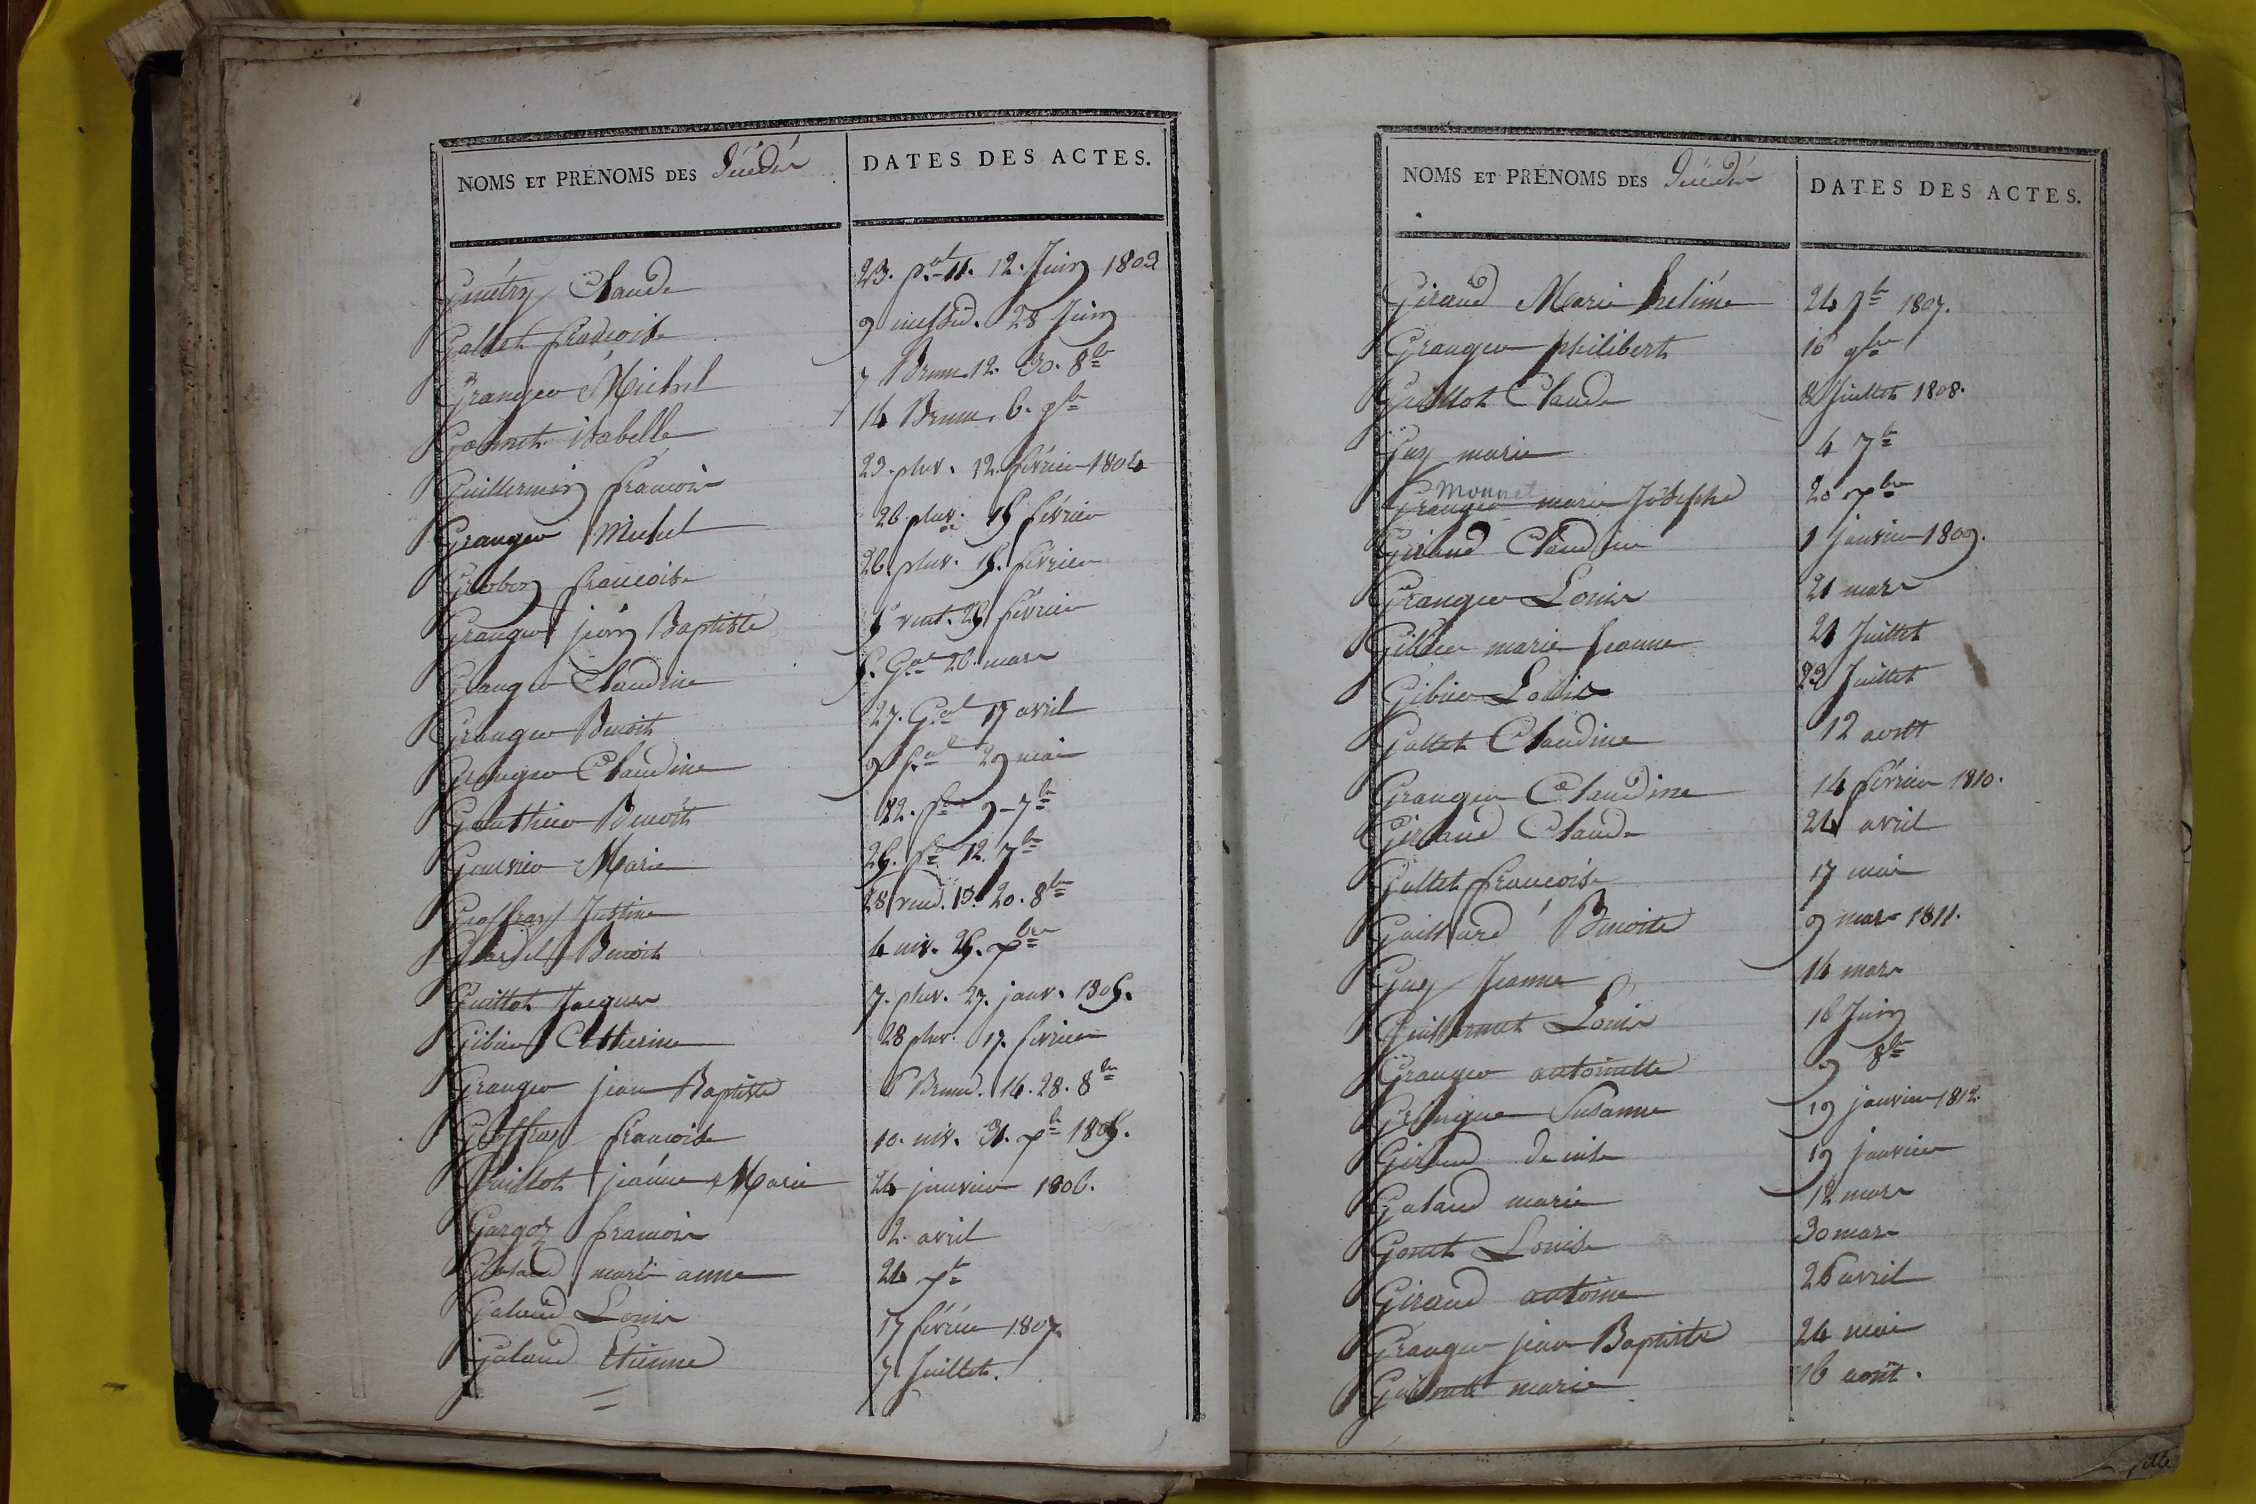 NOMS ET PRÉNOMS DES Décédés
DATES DES ACTES.
Claude 23. p.al 11. 12. Juin 1803
Gallet francoise 9 messid. 28 Juin
Granger Michel 7 Brum. 12. 30. 8bre
Gonnet isabelle 14 Brum. 6. 9bre
Guillermin francois 23. pluv. 12. février 1804
Granger Michel 26 pluv. 15 février
francoise 26. pluv. 15. février
Granger jean Baptiste 5 vent. 25 février
Granger Claudine 5. G.al 26. mars
Granger Benoit 27. G.al 17 avril
Granger Claudine 9 p.al 29 mai
Gauthier Benoit 22. f.or 9 7bre
Marie 25. f.or 12. 7bre
Geoffray Justine 28 vend. 13. 20. 8bre
Benoit 4 niv. 25. xbre
Guillot Jacques 7. pluv. 27. janv. 1805.
Gibier Catherine 28 pluv. 17. février
Granger jean Baptiste 6 Brum. 14. 28. 8bre
Geoffray francoise 10. niv. 31. xbre 1805.
Guillot jeanne Marie 24 janvier 1806.
francois 2. avril
marie anne 24 xbre
Galand Louis 17 février 1807
Galand Etienne 7 Juillet.
NOMS ET PRÉNOMS DES Décédés
DATES DES ACTES.
Giraud Marie 24 7bre 1807.
Granger philibert 16 9bre
Guillot Claude 2 Juillet 1808.
Guy marie 4 7bre
Monnet
Granger marie Josephe 20 xbre
Giraud Claudine 1 janvier 1809.
Granger Louis 21 mars
Gibier marie jeanne 21 Juillet
Gibier Louis 22 Juillet
Gallet Claudine 12 aout
Granger Claudine 14 février 1810.
Giraud Claude 24 avril
Gallet francoise 17 mai
Gaillard Benoite 9 mars 1811.
Guy Jeanne 14 mars
Guillermet Louis 16 Juin
Granger antoinette 9 8bre
Susanne 19 janvier 1812.
Giraud denise 19 janvier
Galand marie 12 mars
Gonet Louise 30 mars
Giraud antoine 26 avril
Granger jean Baptiste 24 mai
marie 16 août.